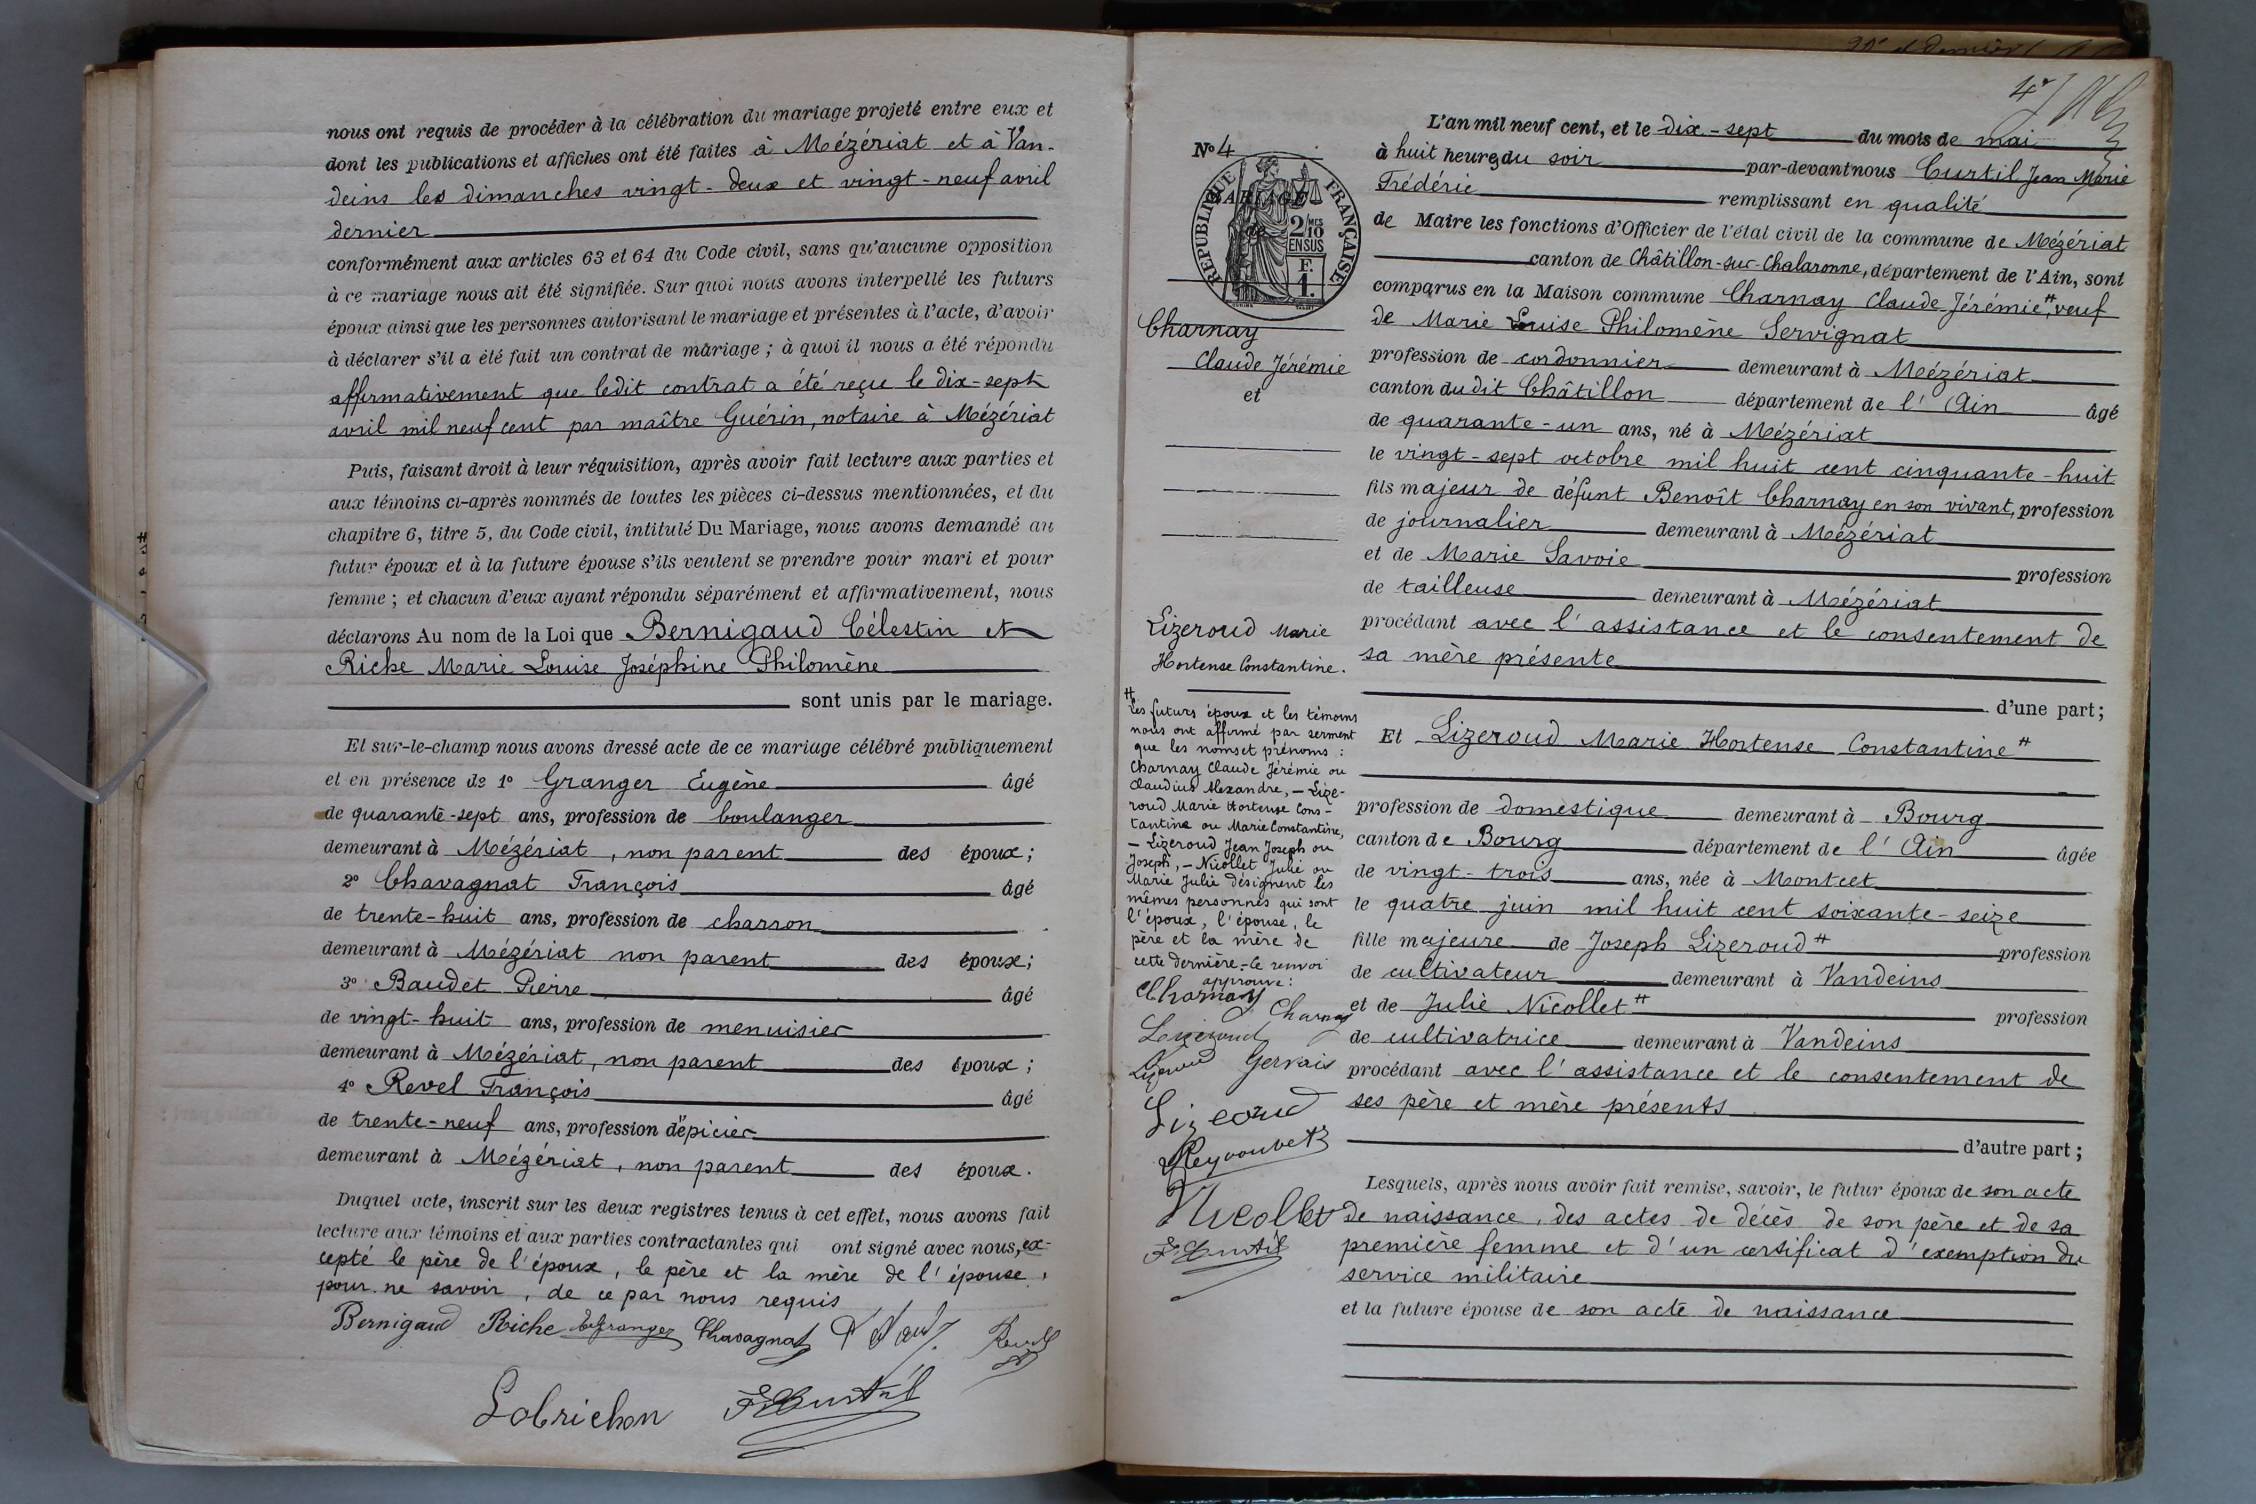 nous ont requis de procéder à la célébration du mariage projeté entre eux et
dont les publications et affiches ont été faites à Mézériat et à Van-
deins les dimanches vingt-deux et vingt-neuf avril
dernier
conformément aux articles 63 et 64 du Code civil, sans qu'aucune opposition
à ce mariage nous ait été signifiée. Sur quoi nous avons interpellé les futurs
époux ainsi que les personnes autorisant le mariage et présentes à l'acte, d'avoir
à déclarer s'il a été fait un contrat de mariage ; à quoi il nous a été répondu
affirmativement que ledit contrat a été reçu le dix-sept
avril mil neuf cent par maître Guérin, notaire à Mézériat
Puis, faisant droit à leur réquisition, après avoir fait lecture aux parties et
aux témoins ci-après nommés de toutes les pièces ci-dessus mentionnées, et du
chapitre 6, titre 5, du Code civil, intitulé Du Mariage, nous avons demandé au
futur époux et à la future épouse s'ils veulent se prendre pour mari et pour
femme ; et chacun d'eux ayant répondu séparément et affirmativement, nous
déclarons Au nom de la Loi que Bernigaud Célestin et
Riche Marie Louise Joséphine Philomène
sont unis par le mariage.
Et sur-le-champ nous avons dressé acte de ce mariage célébré publiquement
et en présence de 1º Granger Eugène âgé
de quarante-sept ans, profession de boulanger
demeurant à Mézériat, non parent des époux ;
2º Chavagnat François âgé
de trente-huit ans, profession de charron
demeurant à Mézériat non parent des époux ;
3º Baudet Pierre âgé
de vingt-huit ans, profession de menuisier
demeurant à Mézériat, non parent des époux ;
4º Revel François âgé
de trente-neuf ans, profession d'épicier
demeurant à Mézériat, non parent des époux.
Duquel acte, inscrit sur les deux registres tenus à cet effet, nous avons fait
lecture aux témoins et aux parties contractantes qui ont signé avec nous, ex-
cepté le père de l'époux, le père et la mère de l'épouse,
pour ne savoir, de ce par nous requis
Bernigaud Riche Granger Chavagnat Revel
Lobrichon F Curtil
4e
Nº 4
MARIAGE
de
RÉPUBLIQUE FRANÇAISE
2/10 MES
EN SUS
F.
1.
Charnay
Claude Jérémie
et
Lizeroud Marie
Hortense Constantine.
# Les futurs époux et les témoins
nous ont affirmé par serment
que les noms et prénoms :
Charnay Claude Jérémie ou
Claudius Alexandre, – Lize-
roud Marie Hortense Cons-
tantine ou Marie Constantine,
– Lizeroud Jean Joseph ou
Joseph, – Nicollet Julie ou
Marie Julie désignent les
mêmes personnes qui sont
l'époux, l'épouse, le
père et la mère de
cette dernière. – Le renvoi
approuvé :
Charnay
Charnay
Lizeroud
Lizeroud Gervais
Lizeroud
Nicollet
F Curtil
L'an mil neuf cent, et le dix-sept du mois de mai
à huit heures du soir par-devant nous Curtil Jean Marie
Frédéric remplissant en qualité
de Maire les fonctions d'Officier de l'état civil de la commune de Mézériat
canton de Châtillon-sur-Chalaronne, département de l'Ain, sont
comparus en la Maison commune Charnay Claude Jérémie #, veuf
de Marie Louise Philomène Servignat
profession de cordonnier demeurant à Mézériat
canton du dit Châtillon département de l'Ain âgé
de quarante-un ans, né à Mézériat
le vingt-sept octobre mil huit cent cinquante-huit
fils majeur de défunt Benoît Charnay en son vivant, profession
de journalier demeurant à Mézériat
et de Marie Savoie profession
de tailleuse demeurant à Mézériat
procédant avec l'assistance et le consentement de
sa mère présente
d'une part ;
Et Lizeroud Marie Hortense Constantine #
profession de domestique demeurant à Bourg
canton de Bourg département de l'Ain âgée
de vingt-trois ans, née à Montcet
le quatre juin mil huit cent soixante-seize
fille majeure de Joseph Lizeroud # profession
de cultivateur demeurant à Vandeins
et de Julie Nicollet # profession
de cultivatrice demeurant à Vandeins
procédant avec l'assistance et le consentement de
ses père et mère présents
d'autre part ;
Lesquels, après nous avoir fait remise, savoir, le futur époux de son acte
de naissance, des actes de décès de son père et de sa
première femme et d'un certificat d'exemption du
service militaire
et la future épouse de son acte de naissance